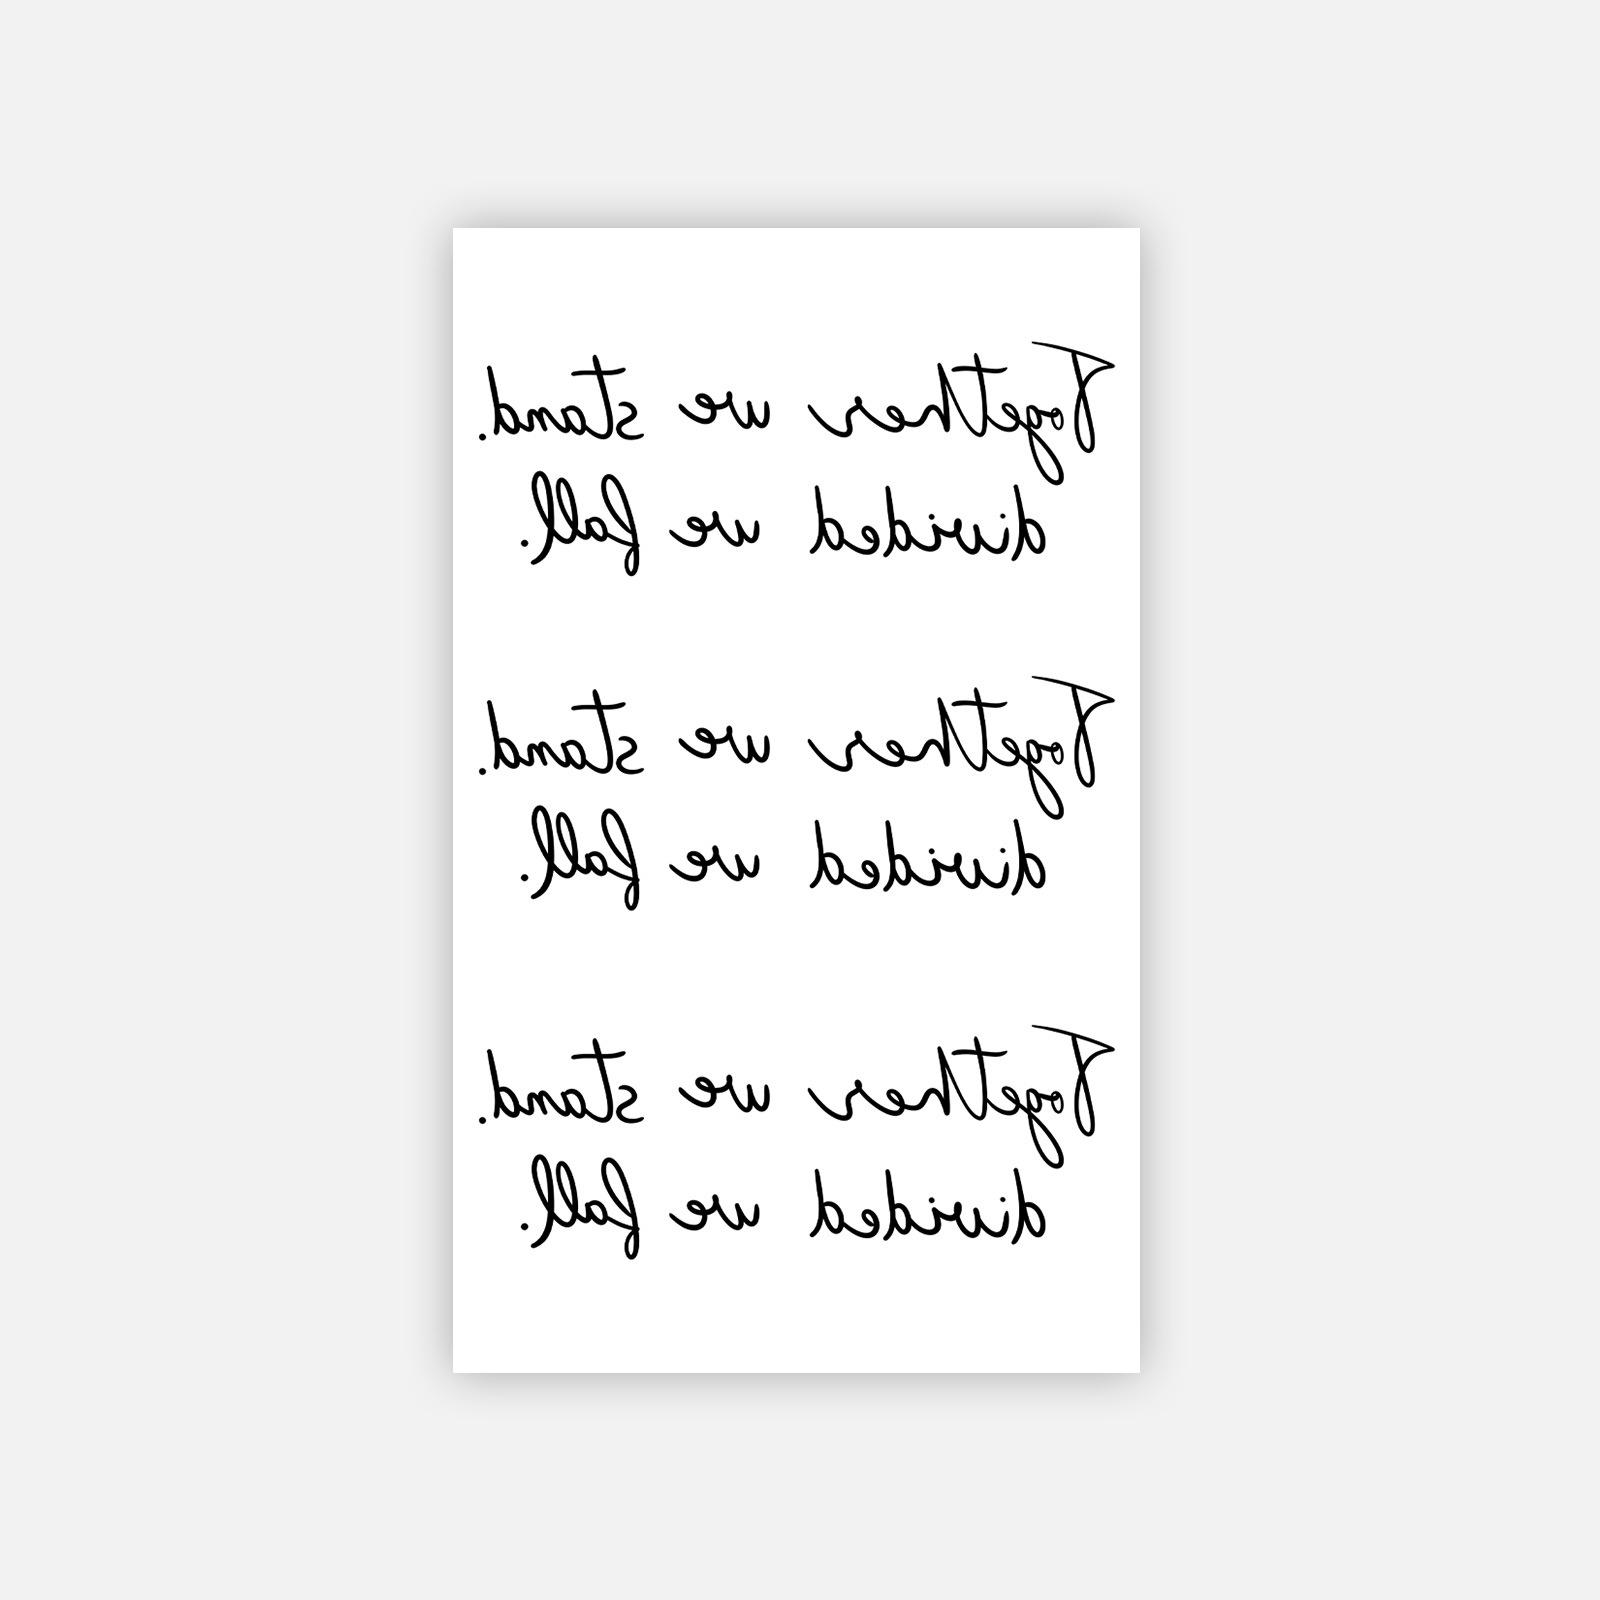 Together we stand.
divided we fall.
Together we stand.
divided we fall.
Together we stand.
divided we fall.